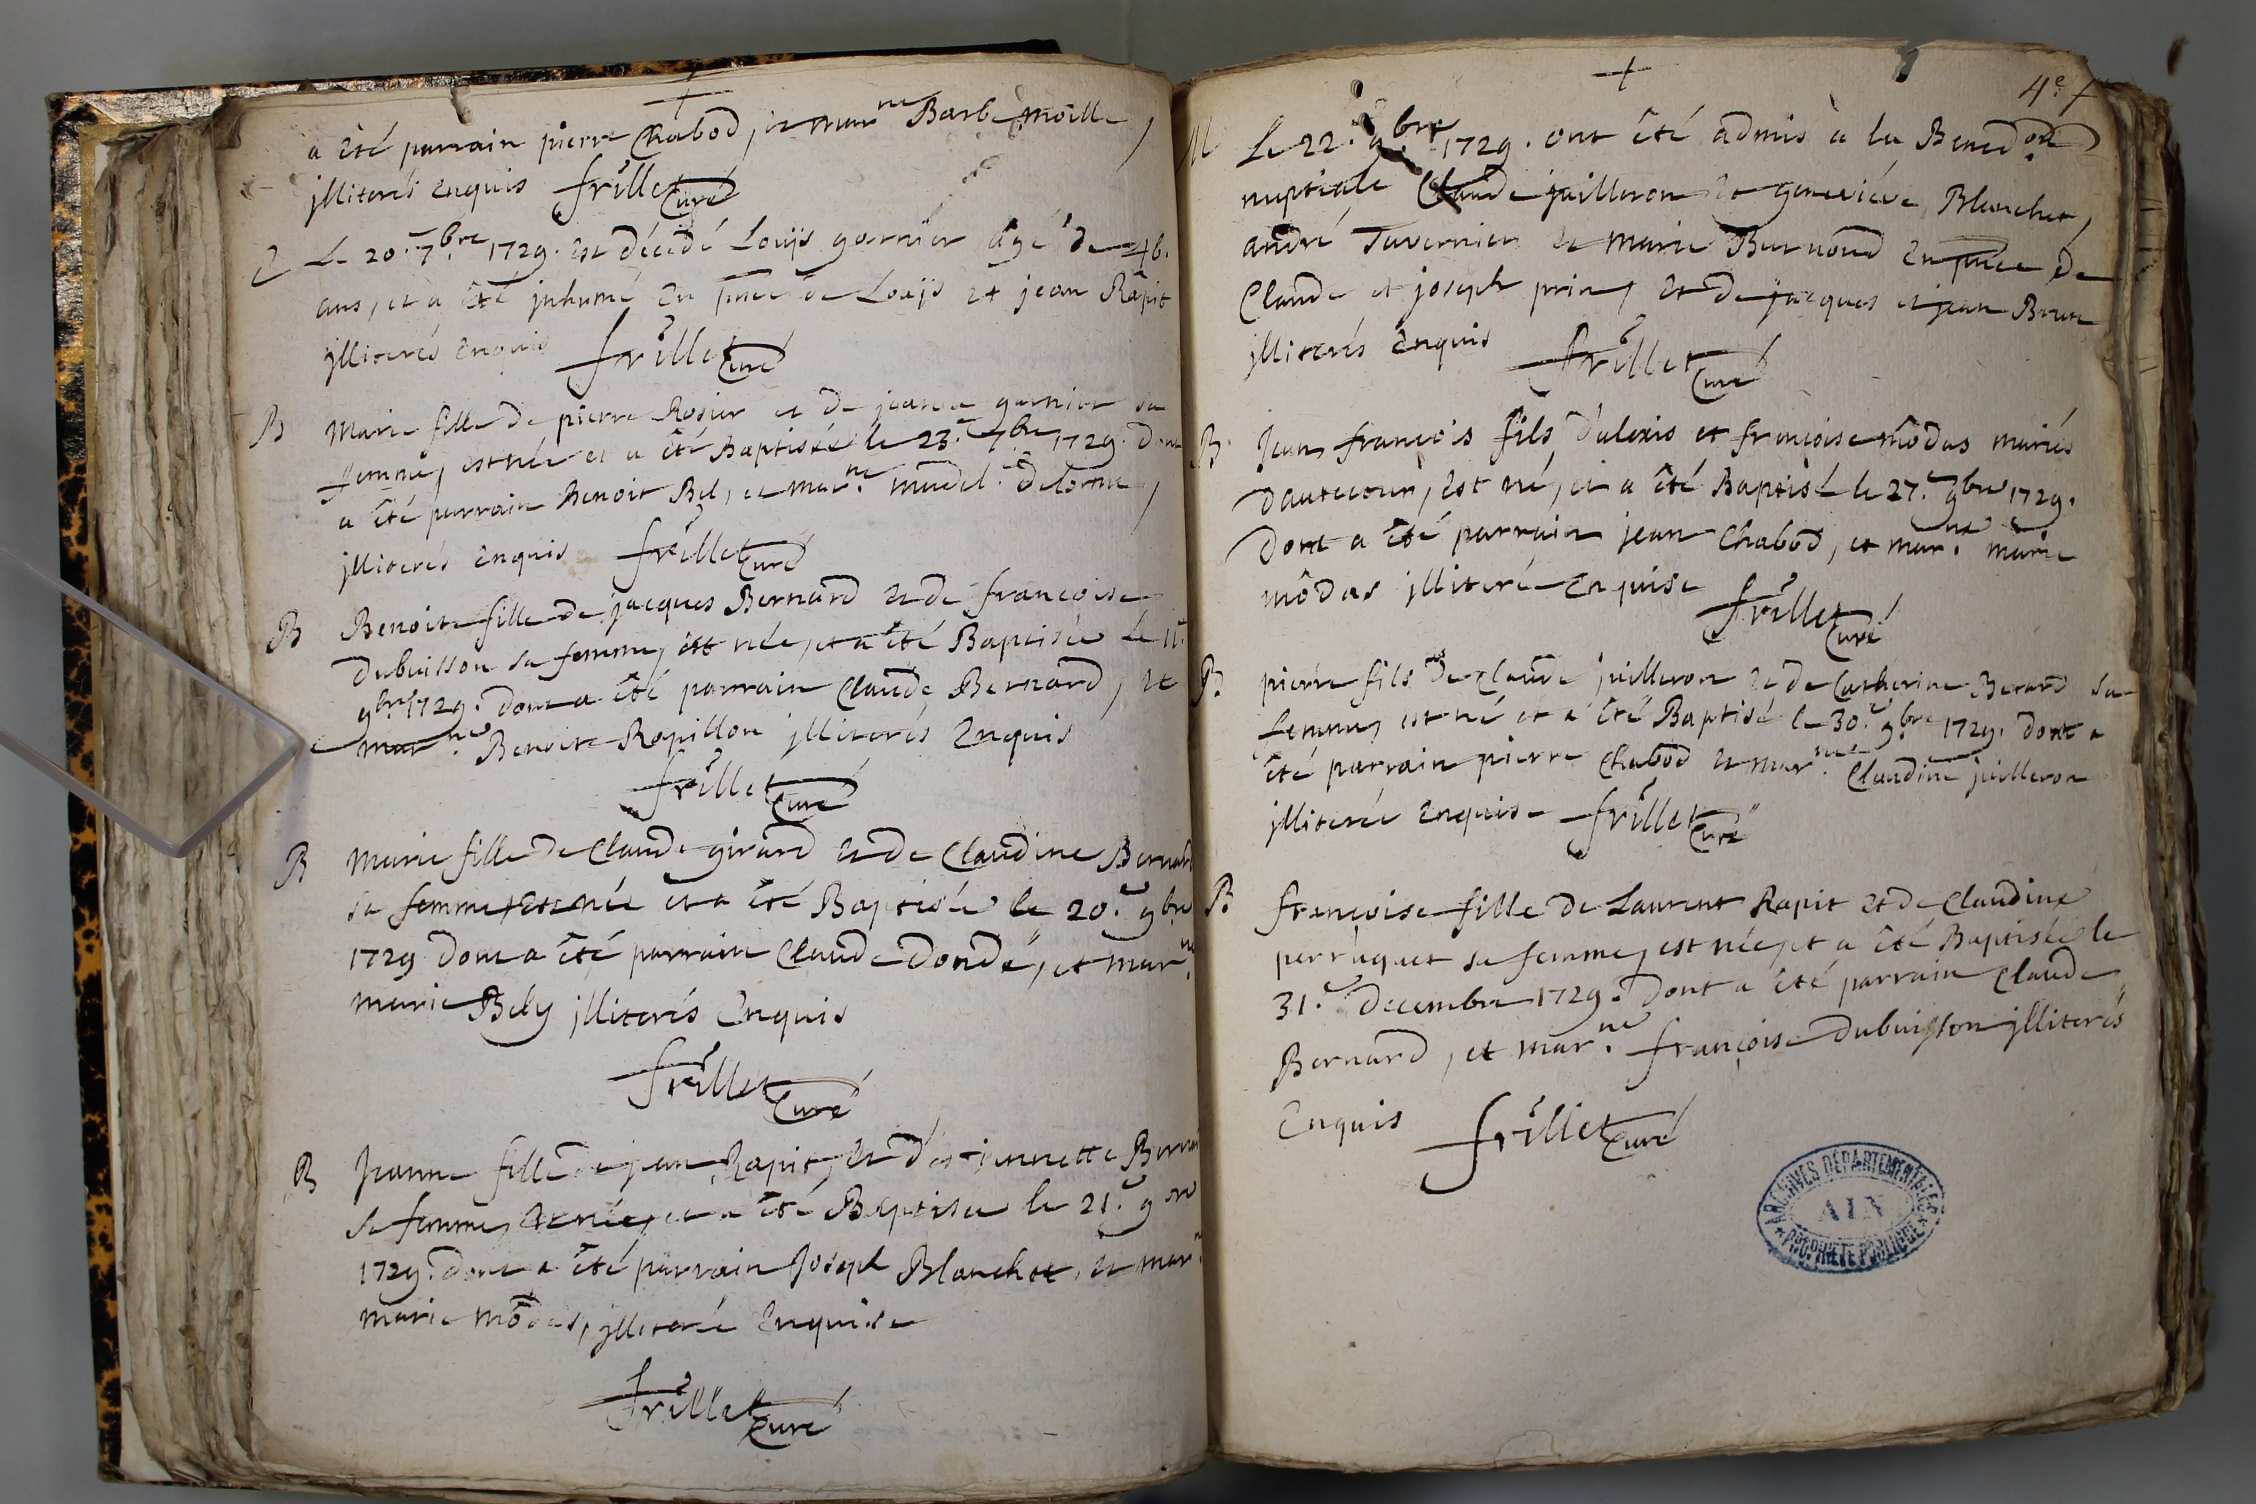 a été parrain pierre Chabod, et marne Barbe moëlle,
jlliterés enquis frillet Curé
Le 20.e 7bre 1729. est décédé Louijs garnier agé de 46.
ans, et a été juhumé en pnce de Louijs et jean Rapit
jlliterés enquis frillet Curé
B Marie fille de pierre Rosier et de jeanne garnier sa
femme, est née et a été Baptisée le 23.e 7bre 1729. dont
a été parrain Benoit Bel, et mar.ne madel.e delorme,
jlliterés enquis frillet Curé
B Benoite fille de jacques Bernard et de françoise
dubuisson sa femme, est née, et a été Baptisée le 11.e
9bre 1729. dont a été parrain Claude Bernard, et
mar.ne Benoite Rapillon jlliterés enquis
frillet Curé
B Marie fille de Claude girard et de Claudine Bernard
sa femme, est née et a été Baptisée le 20.e 9bre
1729 dont a été parrain Claude Dondé, et mar.ne
marie Bely jlliterés enquis
frillet Curé
B Jeanne fille de jean Rapit, et de jeannette
sa femme, est née, et a été Baptisée le 21.e 9bre
1729. dont a été parrain Joseph Blanchet, et mar.ne
marie môdas, jlliterée enquise
frillet Curé
4.e
M Le 22.e 9bre 1729. ont été admis à la Bened.on
nuptiale Claude juilleron et geneviéve Blanchet,
andré Tavernier et marie Burnoud en pnce de
Claude et joseph prin, et de jacques et jean Brun
jlliterés enquis frillet Curé
B Jean françois fils d'alexis et françoise môdas mariés
dautecour, est né, et a été Baptisé le 27.e 9bre 1729.
dont a été parrain jean Chabod, et mar.ne marie
môdas jlliteré enquise
frillet Curé
B. pierre fils de Claude juilleron et de Catherine Berard sa
femme, est né et a été Baptisé le 30.e 9bre 1729. dont a
été parrain pierre Chabod et mar.ne Claudine juilleron
jlliterée enquise frillet Curé
B. françoise fille de Laurent Rapit et de Claudine
perruquet sa femme, est née, et a été Baptisée le
31.e decembre 1729. dont a été parrain Claude
Bernard, et mar.ne françoise dubuisson jlliterés
enquis frillet Curé
ARCHIVES DÉPARTEMENTALES
AIN
PROPRIÉTÉ PUBLIQUE